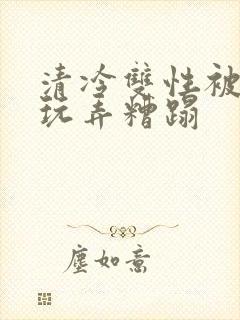 清冷雙性被
玩弄糟蹋
塵如意